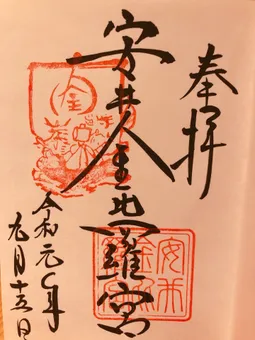 奉拝
安井金比羅宮
令和元年
九月十五日